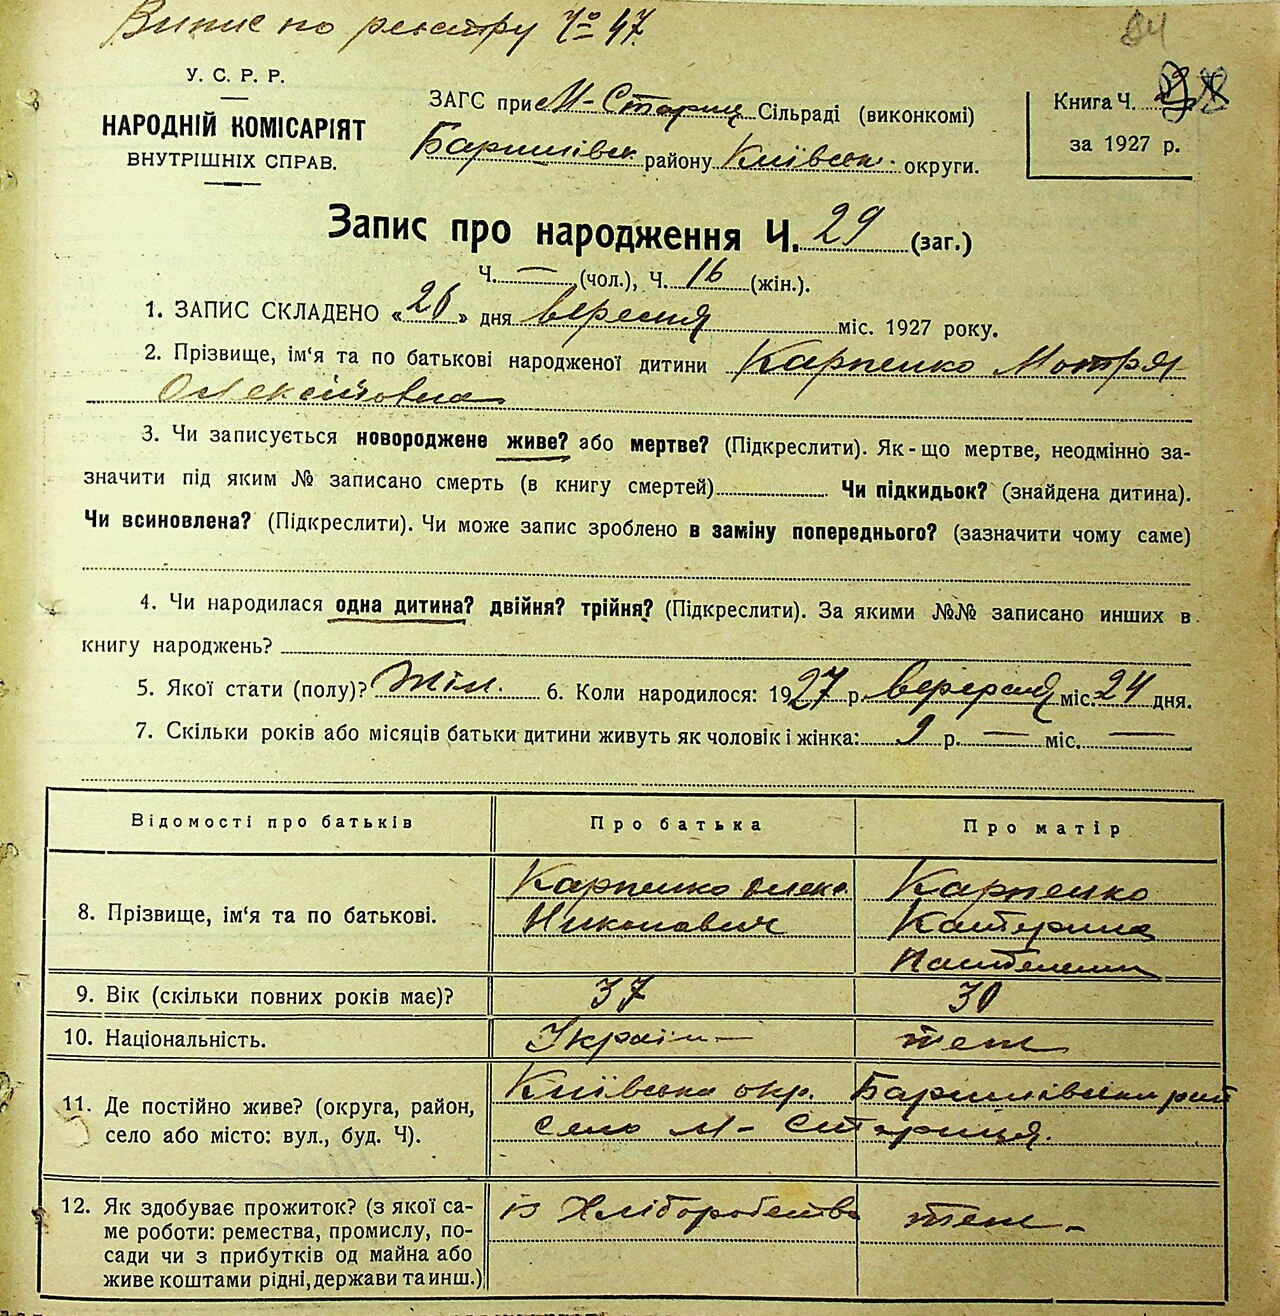 Випис по реєстру № 47
84
У. С. Р. Р.
НАРОДНІЙ КОМІСАРІЯТ
ВНУТРІШНІХ СПРАВ.
ЗАГС при М-Стариц Сільраді (виконкомі)
Баришівськ району Київськ. округи.
Книга Ч.
за 1927 р.
Запис про народження Ч. 29 (заг.)
Ч. — (чол.), Ч. 16 (жін.).
1. ЗАПИС СКЛАДЕНО «26» дня вересня міс. 1927 року.
2. Прізвище, ім'я та по батькові народженої дитини Карпенко Мотря
Олексійовна
3. Чи записується новороджене живе? або мертве? (Підкреслити). Як-що мертве, неодмінно за-
значити під яким № записано смерть (в книгу смертей) Чи підкидьок? (знайдена дитина).
Чи всиновлена? (Підкреслити). Чи може запис зроблено в заміну попереднього? (зазначити чому саме)
4. Чи народилася одна дитина? двійня? трійня? (Підкреслити). За якими №№ записано инших в
книгу народжень?
5. Якої стати (полу)? Жін. 6. Коли народилося: 1927 р. міс. 24 дня.
7. Скільки років або місяців батьки дитини живуть як чоловік і жінка: 9 р. — міс. —
Відомості про батьків Про батька Про матір
8. Прізвище, ім'я та по батькові. Карпенко Олекс. Карпенко
Николавич Катерина
9. Вік (скільки повних років має)? 37 30
10. Національність. Україн— теж
11. Де постійно живе? (округа, район, Київська окр. Баришівський рай
село або місто: вул., буд. Ч). село М- Стариця.
12. Як здобуває прожиток? (з якої са- із Хліборобства теж -
ме роботи: ремества, промислу, по-
сади чи з прибутків од майна або
живе коштами рідні, держави та инш.)